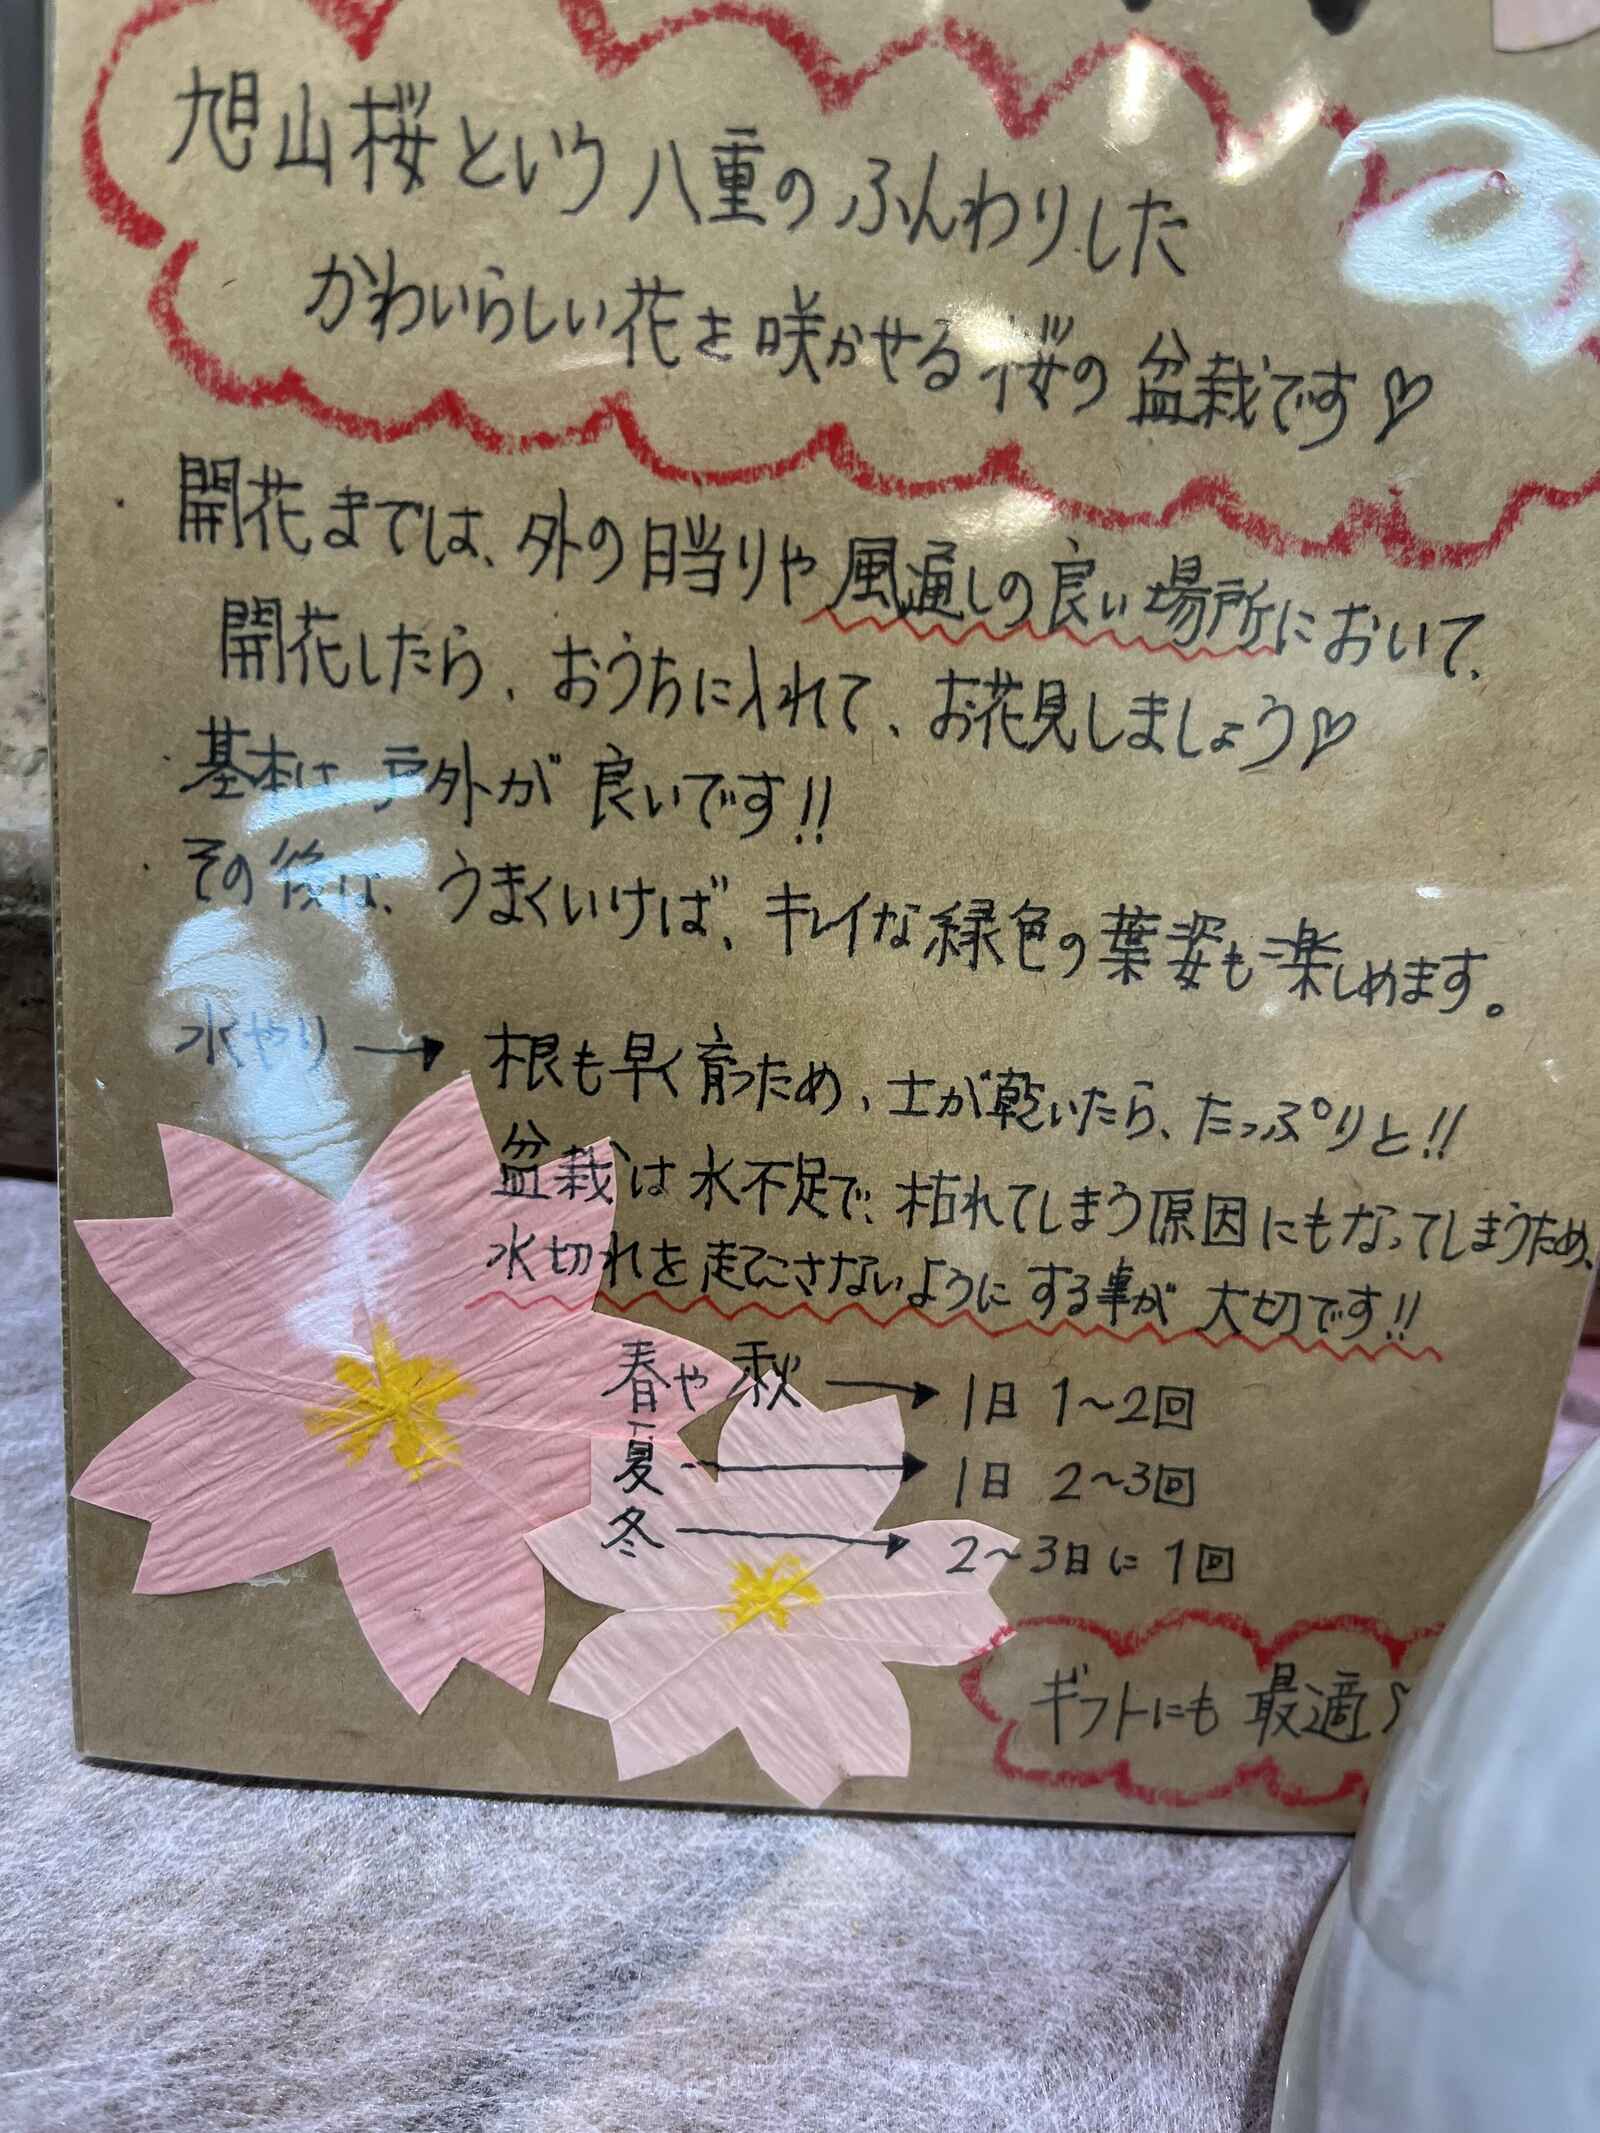 旭山桜という八重のふんわりした
かわいらしい花を咲かせる桜の盆栽です♡
・開花までは、外の日当りや風通しの良い場所において、
開花したら、おうちに入れて、お花見しましょう♡
・基本は、戸外が良いです!!
・その後は、うまくいけば、キレイな緑色の葉姿も楽しめます。
水やり→根も早く育つため、土が乾いたら、たっぷりと!!
盆栽は水不足で、枯れてしまう原因にもなってしまうため、
水切れを起こさないようにする事が大切です!!
春や秋→1日 1〜2回
夏→1日 2〜3回
冬→2〜3日に 1回
ギフトにも最適